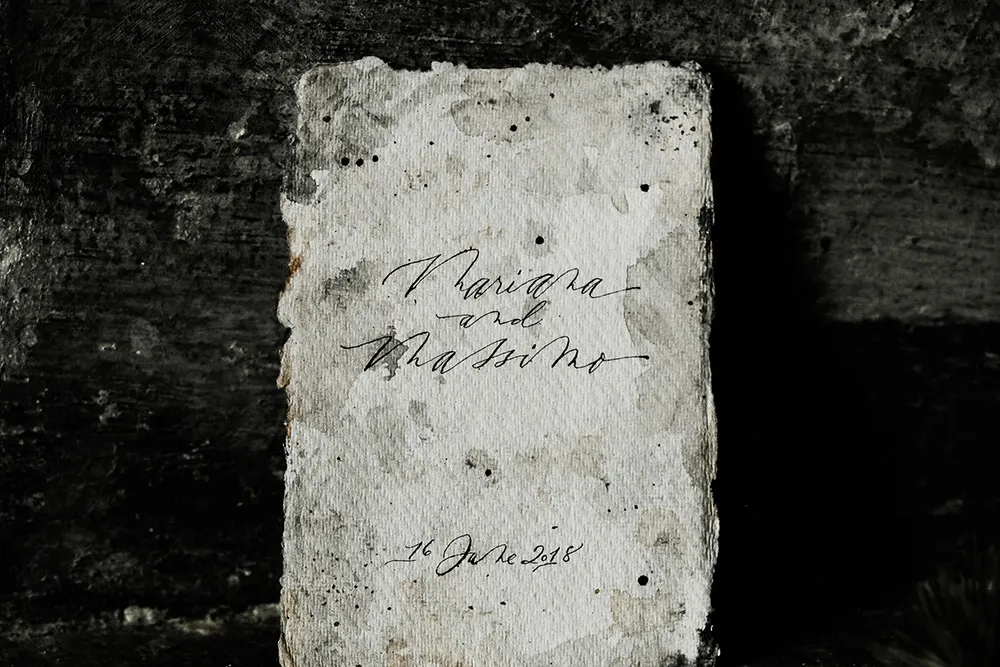 Mariana
and
Massimo
16 June 2018